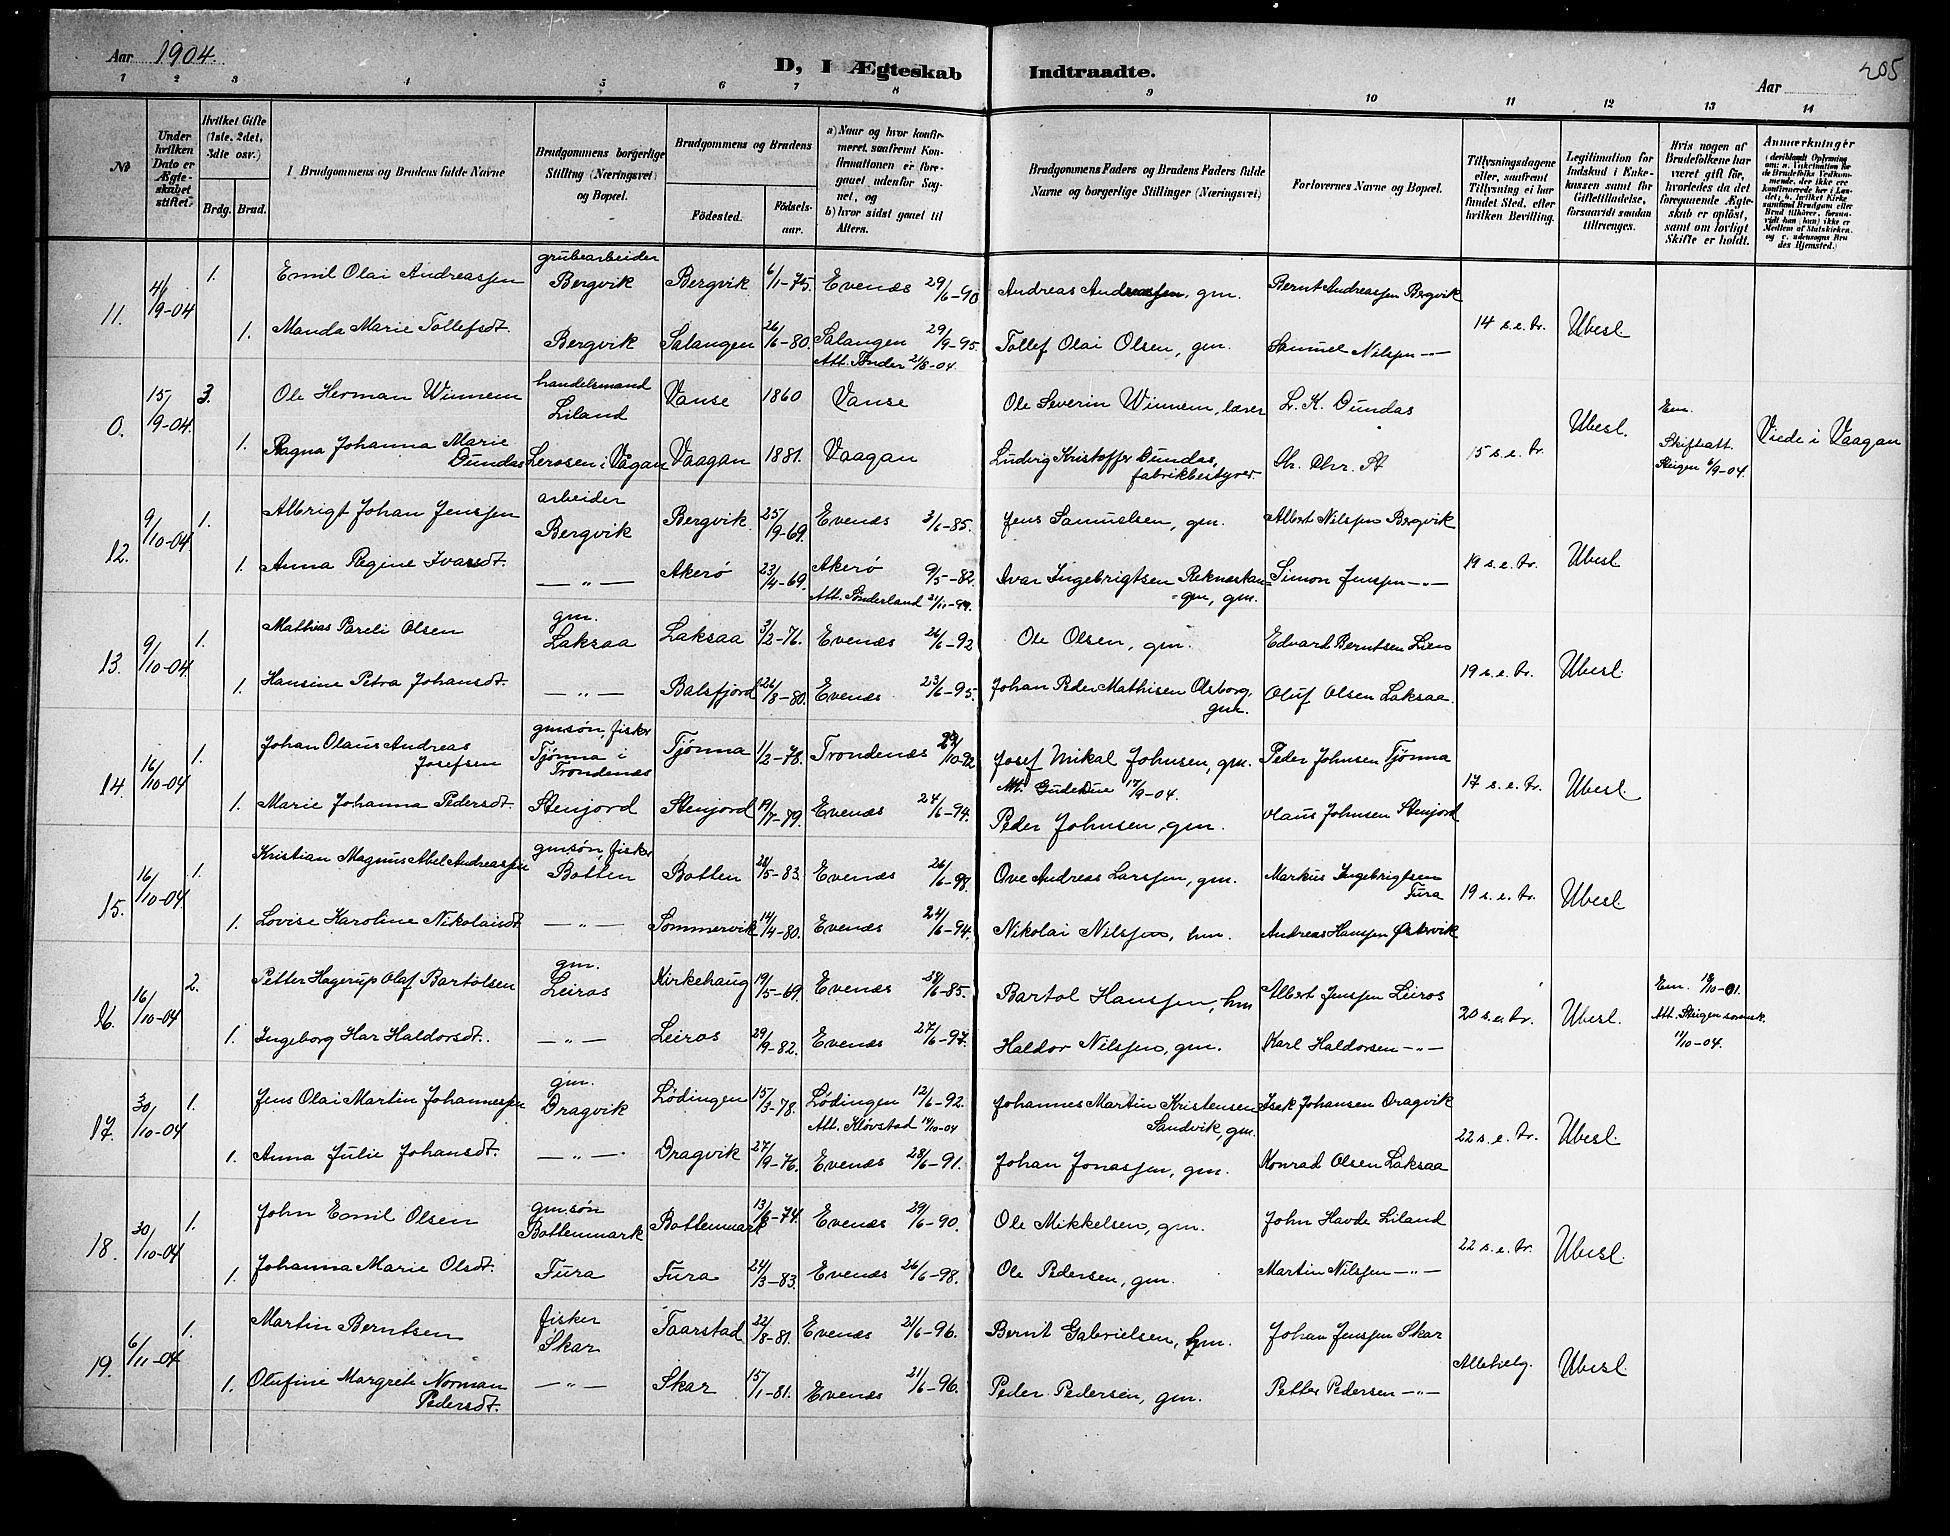 Aar 1904. D, I Ægteskab Indtraadte. Aar 205
1 2 3 4 5 6 7 8 9 10 11 12 13 14
№
Under hvilken Dato er Ægteskabet stiftet.
Hvilket Gifte (1ste, 2det, 3die osv.)
Brdg. Brud.
Brudgommens og Brudens fulde Navne
Brudgommens borgerlige Stilling (Næringsvei) og Bopæl.
Brudgommens og Brudens
Fødested. Fødselsaar.
a) Naar og hvor konfirmeret, saafremt Konfirmationen er foregaaet udenfor Sognet, og
b) hvor sidst gaaet til Alters.
Brudgommens Faders og Brudens Faders fulde Navne og borgerlige Stillinger (Næringsvei)
Forlovernes Navne og Bopæl.
Tillysningsdagene eller, saafremt Tillysning ei har fundet Sted, efter hvilken Bevilling.
Legitimation for Indskud i Enkekassen samt for Giftetilladelse, forsaavidt saadan tiltrænges.
Hvis nogen af Brudefolkene har været gift før, hvorledes da det foregaaende Ægteskab er opløst, samt om lovligt Skifte er holdt.
Anmærkninger
11. 4/9-04 1. Emil Olai Andreassen grubearbeider Bergvik Bergvik 6/1-75. Evenæs 29/6-90 Andreas Andreassen, gm. Bernt Andreassen Bergvik
1. Manda Marie Tollefsdt. Bergvik Salangen 26/6-80. Salangen 29/9-95. Tollef Olai Olsen, gm. Samuel Nilsen -"- 14 s.e.tr. Ubesl.
Att. Tønder 21/8-04.
0. 15/9-04. 3. Ole Herman Winnem handelsmand Liland Vanse 1860 Vanse Ole Severin Winnem, lærer L. K. Dundas Ubesl. Em.
1. Ragna Johanna Marie Dundas Lerosen i Vågan Vaagan 1881. Vaagan Ludvig Kristoffer Dundas, fabrikbestyrer. 15 s.e.tr. Skifteatt. Steigen 6/9-04. Viede i Vaagan
12. 9/10-04. 1. Albrigt Johan Jenssen arbeider Bergvik Bergvik 25/9-69. Evenæs 3/6-85. Jens Samuelsen, gm. Albert Nilsen Bergvik
1. Anna Regine Ivarsdt. -"- Akerø 23/4-69. Akerø 9/5-82. Ivar Ingebrigtsen Reknæstangen, gm. Simon Jensen -"- 19 s.e.tr. Ubesl
Att. Sønderland 21/11-99.
13. 9/10-04 1. Mathias Pareli Olsen gm. Laksaa Laksaa 3/2-76. Evenæs 26/6-92 Ole Olsen, gm. Edvard Berntsen Liens
1. Hansine Petra Johansdt. -"- Balsfjord 26/8-80. Evenæs 23/6-95. Johan Peder Mathisen Olsborg, gm. Oluf Olsen Laksaa. 19 s.e.tr. Ubesl.
14. 16/10-04 1. Johan Olaus Andreas Josefsen gmsøn, fisker Tjønna i Trondenæs Tjønna 1/2-78. Trondenæs /10-92 Josef Mikal Johnsen, gm. Peder Johnsen Tjønna
17/9-04.
1. Marie Johanna Pedersdt. Stenjord Stenjord 19/7-79. Evenæs 24/6-94. Peder Johnsen, gm. Olaus Johnsen Stenjord 17 s.e.tr. Ubesl.
15. 16/10-04. 1. Kristian Magnus Abel Andreassen gmsøn, fisker Botten Botten 28/5-83. Evenæs 26/6-98. Ove Andreas Larssen, gm. Markus Ingebrigtsen Fura 19 s.e.tr. Ubesl
1. Lovise Karoline Nikolaisdt. -"- Sommervik 14/4-80. Evenæs 24/6-94. Nikolai Nilssen, hm. Andreas Hanssen Østervik
16. 16/10-04 2. Petter Hagerup Olaf Bartolsen gm. Leiros Kirkehaug 19/5-69. Evenæs 28/6-85. Bartol Hanssen, hm Albert Jenssen Leiros Em. 18/10-01.
1. Ingeborg Har Haldorsdt. -"- Leiros 29/9-82. Evenæs 27/6-97. Haldor Nilssen, gm. Karl Haldorsen -"- 20 s.e.tr. Ubesl. Att. Steigen sornsk. 11/10-04.
17. 30/10-04 1. Jens Olai Martin Johannessen gm. Dragvik Lødingen 15/3-78. Lødingen 12/6-92. Johannes Martin Kristensen Sandvik, gm. Isak Johansen Dragvik
Att. Kløvstad 14/10-04
1. Anna Julie Johansdt. -"- Dragvik 27/9-76. Evenæs 28/6-91. Johan Jonassen, gm. Konrad Olsen Laksaa 22 s.e.tr. Ubesl.
18. 30/10-04 1. John Emil Olsen gmsøn Bottenmark Bottenmark 13/8-74. Evenæs 29/6-90. Ole Mikkelsen, gm. John Havde Liland
1. Johanna Marie Olsdt. Fura Fura 24/3-83. Evenæs 26/6-98. Ole Pedersen, gm. Martin Nilssen -"- 22 s.e.tr. Ubesl.
19. 6/11-04 1. Martin Berntsen fisker Skar Taarstad 22/8-81. Evenæs 21/6-96. Bernt Gabrielsen, hm. Johan Jenssen Skar
1. Olufine Margreth Norman Pedersdt. -"- Skar 15/1-81. Evenæs 21/6-96. Peder Pedersen, gm. Petter Pedersen -"- Allehelg. Ubesl.